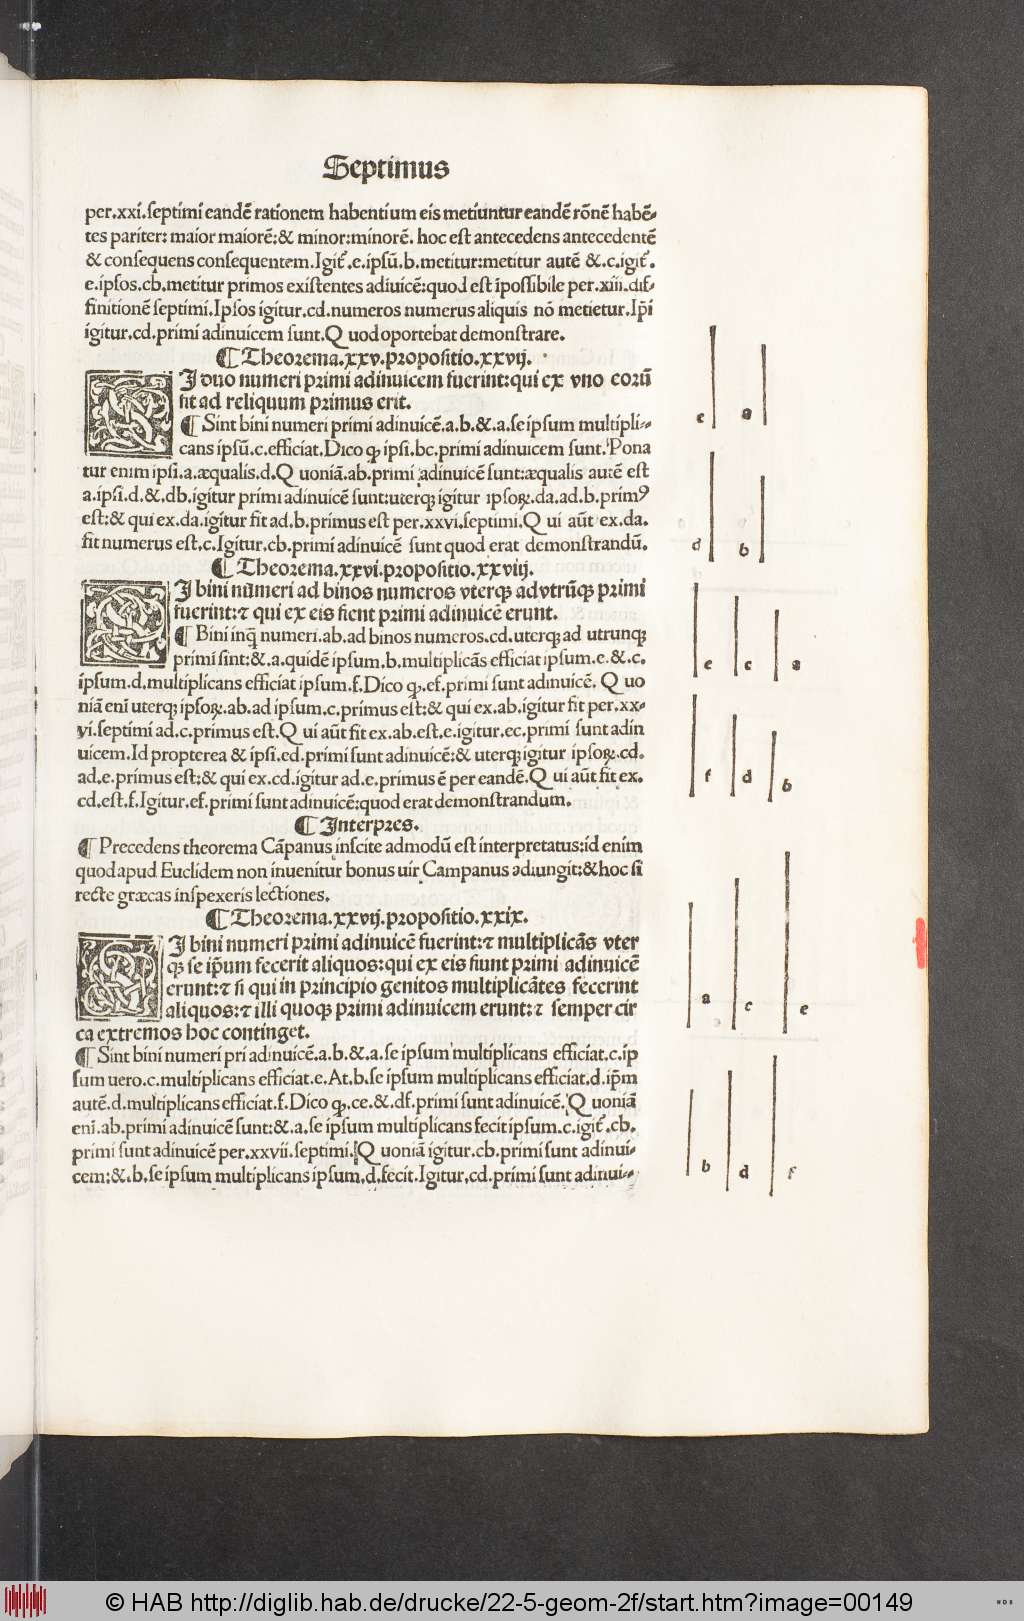 Septimus
per.xxi.septimi eandē rationem habentium eis metiuntur eandē rōnē habē-
tes pariter: maior maiorē:& minor:minorē. hoc est antecedens antecedentē
& consequens consequentem.Igit᷑.e.ipsū.b.metitur:metitur autē &.c.igit᷑.
e.ipsos.cb.metitur primos existentes adiuicē:quod est īpossibile per.xiii.dif-
finitionē septimi.Ipsos igitur.cd.numeros numerus aliquis nō metietur.Ip̄i
igitur.cd.primi adinuicem sunt.Q uod oportebat demonstrare.
¶ Theorema.xxv.propositio.xxvij.
SI duo numeri primi adinuicem fuerint:qui ex vno eorū
fit ad reliquum primus erit.
¶ Sint bini numeri primi adinuicē.a.b.&.a.se ipsum multipli-
cans ipsū.c.efficiat.Dico ꝙ ipsi.bc.primi adinuicem sunt.Pona
tur enim ipsi.a.æqualis.d.Q uoniā.ab.primi adinuicē sunt:æqualis autē est
a.ipsi.d.&.db.igitur primi adinuicē sunt:uterqꝫ igitur ipsoꝝ.da.ad.b.primꝰ
est:& qui ex.da.igitur fit ad.b.primus est per.xxvi.septimi.Q ui aūt ex.da.
fit numerus est.c.Igitur.cb.primi adinuicē sunt quod erat demonstrandū.
¶ Theorema.xxvi.propositio.xxviij.
SI bini nūmeri ad binos numeros vterqꝫ ad vtrūqꝫ primi
fuerint:⁊ qui ex eis fient primi adinuicē erunt.
¶ Bini inq̄ numeri.ab.ad binos numeros.cd.uterqꝫ ad utrunqꝫ
primi sint:&.a.quidē ipsum.b.multiplicās efficiat ipsum.e.&.c.
ipsum.d.multiplicans efficiat ipsum.f.Dico ꝙ.ef.primi sunt adinuicē. Q uo
niā eni uterqꝫ ipsoꝝ.ab.ad ipsum.c.primus est:& qui ex.ab.igitur fit per.xx-
vi.septimi ad.c.primus est.Q ui aūt fit ex.ab.est.e.igitur.ec.primi sunt adin
uicem.Id propterea & ipsi.cd.primi sunt adinuicē:& uterqꝫ igitur ipsoꝝ.cd.
ad.e.primus est:& qui ex.cd.igitur ad.e.primus ē per eandē.Q ui aūt fit ex.
cd.est.f.Igitur.ef.primi sunt adinuicē:quod erat demonstrandum.
¶ Interpres.
¶ Precedens theorema Cāpanus inscite admodū est interpretatus:id enim
quod apud Euclidem non inuenitur bonus uir Campanus adiungit:& hoc si
recte græcas inspexeris lectiones.
¶ Theorema.xxvij.propositio.xxix.
SI bini numeri primi adinuicē fuerint:⁊ multiplicās vter
qꝫ se ip̄um fecerit aliquos:qui ex eis fiunt primi adinuicē
erunt:⁊ si qui in principio genitos multiplicātes fecerint
aliquos:⁊ illi quoqꝫ primi adinuicem erunt:⁊ semper cir
ca extremos hoc continget.
¶ Sint bini numeri pri adinuicē.a.b.&.a.se ipsum multiplicans efficiat.c.ip
sum uero.c.multiplicans efficiat.e.At.b.se ipsum multiplicans efficiat.d.ip̄m
autē.d.multiplicans efficiat.f.Dico ꝙ.ce.&.df.primi sunt adinuicē.Q uoniā
eni.ab.primi adinuicē sunt:&.a.se ipsum multiplicans fecit ipsum.c.igit᷑.cb.
primi sunt adinuicē per.xxvii.septimi.Q uoniā igitur.cb.primi sunt adinui-
cem:&.b.se ipsum multiplicans ipsum.d.fecit.Igitur.cd.primi sunt adinui-
c a
d b
e c a
f d b
a c e
b d f
© HAB http://diglib.hab.de/drucke/22-5-geom-2f/start.htm?image=00149